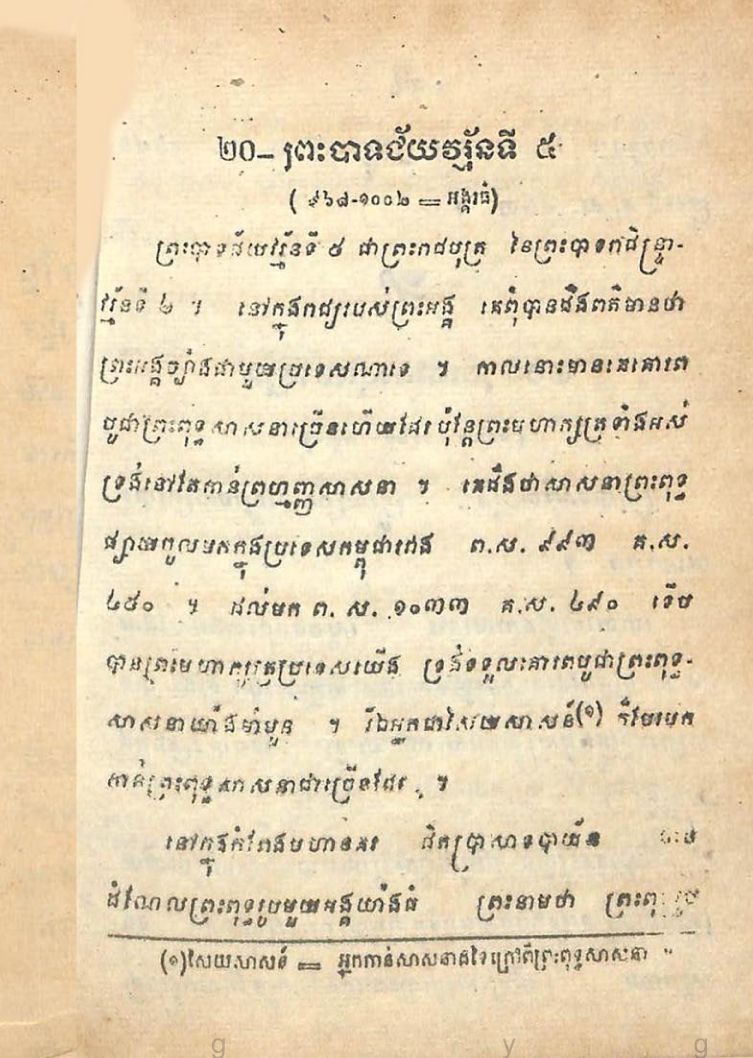 ២០– ព្រះបាទជ័យវរ្ម័នទី ៥
( ៩៦៨-១០០២ = អង្គរធំ)
ព្រះបាទជ័យវរ្ម័នទី ៥ ជាព្រះរាជបុត្រ នៃព្រះបាទរាជិន្ទ្រា-
វរ្ម័នទី ២ ។ នៅក្នុងរាជ្យរបស់ព្រះអង្គ គេពុំបានដឹងពត៌មានថា
ព្រះអង្គច្បាំងជាមួយប្រទេសណាទេ ។ កាលនោះមានគេគោរព
បូជាព្រះពុទ្ធសាសនាច្រើនហើយដែរ ប៉ុន្តែព្រះមហាក្សត្រទាំងអស់
ទ្រង់នៅតែកាន់ព្រហ្មញ្ញសាសនា ។ គេដឹងថាសាសនាព្រះពុទ្ធ
ផ្សាយចូលមកក្នុងប្រទេសកម្ពុជាយើង ព.ស. ៩៩៣ គ.ស.
៤៥០ ។ ដល់មក ព. ស. ១០៣៣ គ.ស. ៤៩០ ទើប
បានព្រះមហាក្សត្រប្រទេសយើង ទ្រង់ទទួលគោរពបូជាព្រះពុទ្ធ-
សាសនាយ៉ាងមាំមួន ។ រីឯអ្នកជាសៃយសាសន៍(១) ក៏បែរមក
កាន់ព្រះពុទ្ធសាសនាជាច្រើនដែរ ។
នៅក្នុងកំពែងមហានគរ ជិតប្រាសាទបាយ័ន មាន
ដំណែលព្រះពុទ្ធរូបមួយអង្គយ៉ាងធំ ព្រះនាមថា
(១)សៃយសាសន៍ = អ្នកកាន់សាសនាដទៃក្រៅពីព្រះពុទ្ធសាសនា ។
g y g